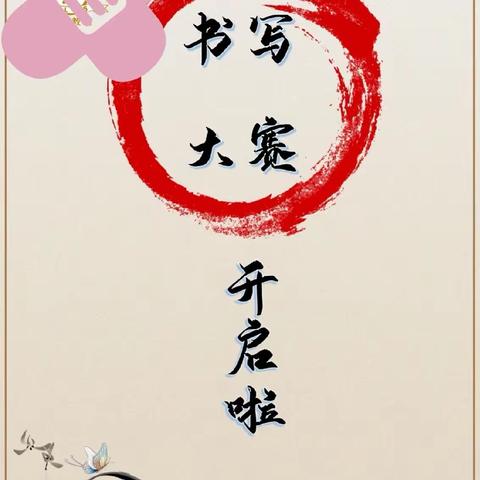 书写
大赛
开启啦